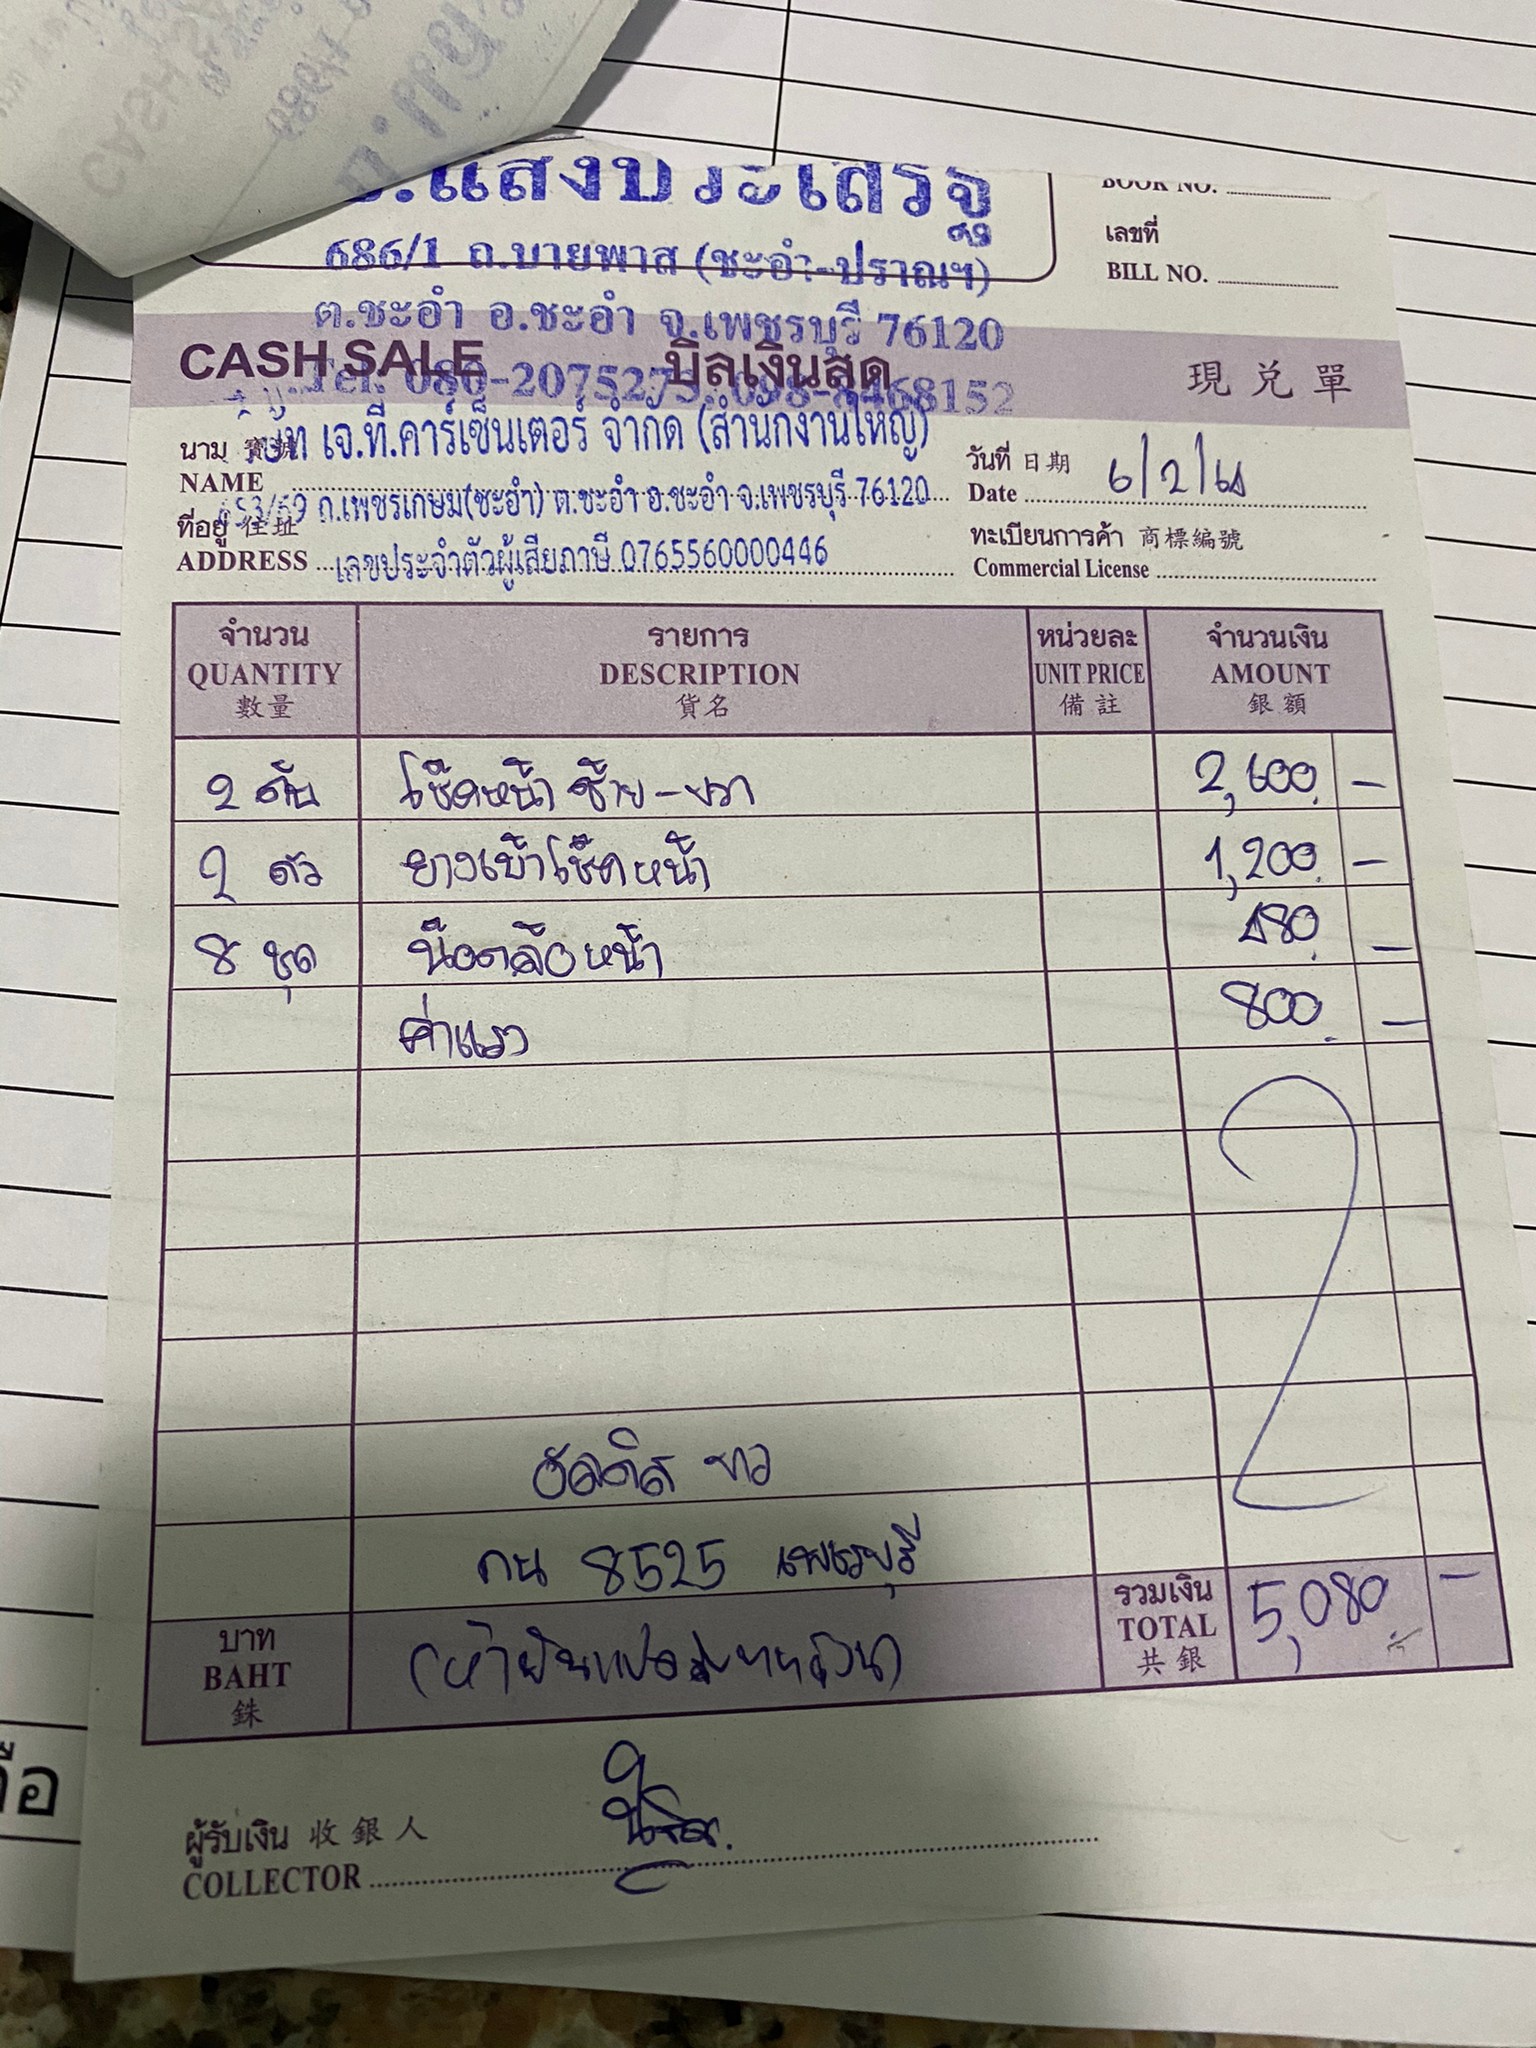 .แสงประเสริฐ
BOOK NO.
เลขที่
BILL NO.
686/1 ถ.บายพาส (ชะอำ-ปราณฯ)
ต.ชะอำ อ.ชะอำ จ.เพชรบุรี 76120
CASH SALE บิลเงินสด 現兌單
Tel. 080-2075273, 098-8468152
นาม 寶號 เจ.ที.คาร์เซ็นเตอร์ จำกัด (สำนักงานใหญ่)
NAME
วันที่ 日期
Date 6/2/64
ที่อยู่ 住址 ถ.เพชรเกษม(ชะอำ) ต.ชะอำ อ.ชะอำ จ.เพชรบุรี 76120
ADDRESS เลขประจำตัวผู้เสียภาษี 0765560000446
ทะเบียนการค้า 商標編號
Commercial License
จำนวน รายการ หน่วยละ จำนวนเงิน
QUANTITY DESCRIPTION UNIT PRICE AMOUNT
數量 貨名 備註 銀額
2 ต้น โช๊คหน้า ซ้าย-ขวา 2,600 -
2 ตัว ยางเบ้าโช๊คหน้า 1,200 -
8 ชุด น๊อตล้อหน้า 480 -
ค่าแรง 800 -
2
อัลติส ขาว
กน 8525 เพชรบุรี
บาท
BAHT
銖
(ห้าพันแปดสิบบาทถ้วน)
รวมเงิน
TOTAL
共銀
5,080 -
ผู้รับเงิน 收銀人
COLLECTOR